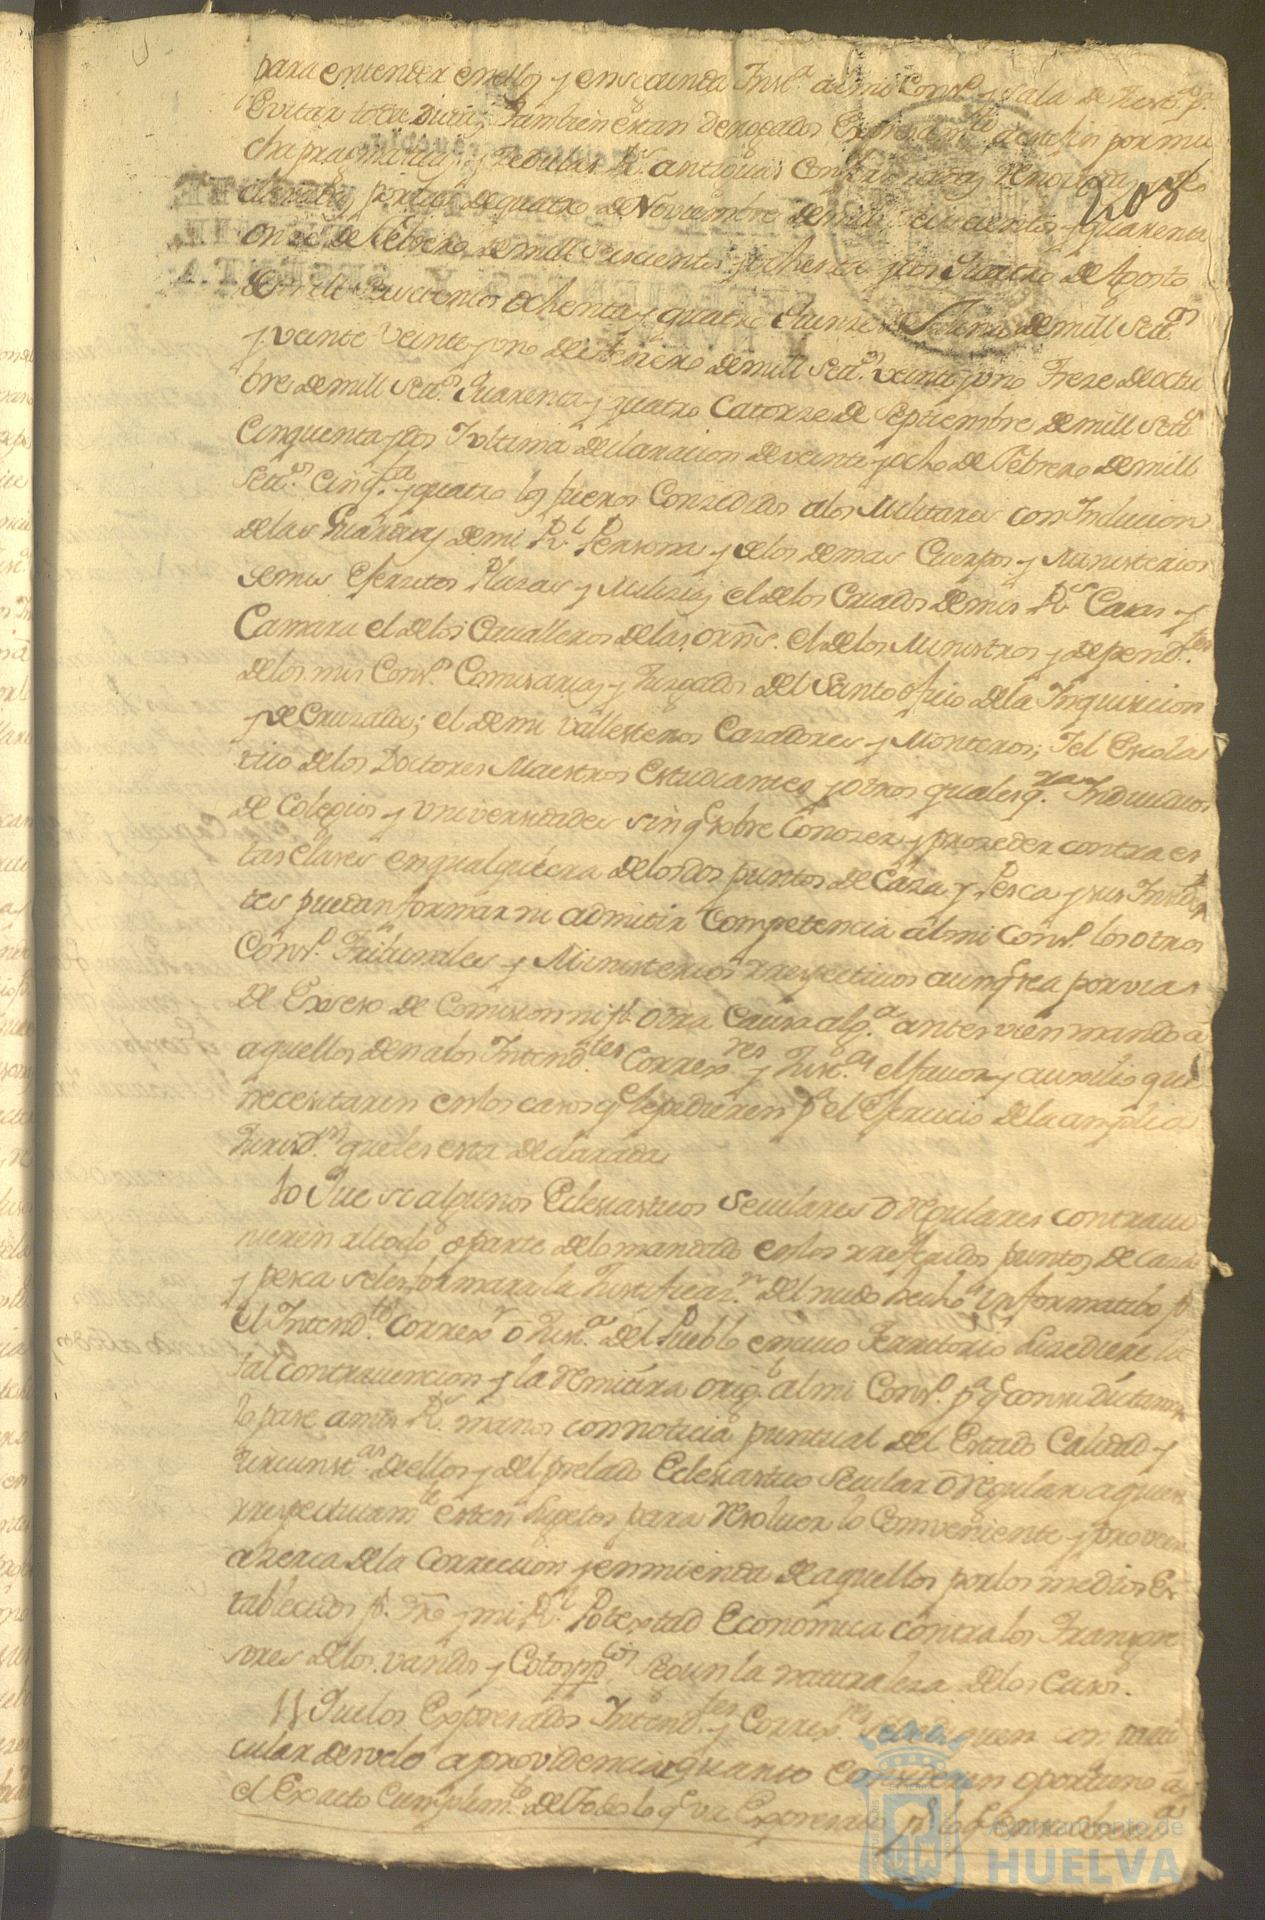 para entender en ellos y en segunda Inst.ª al mi Cons.º y Sala de Just.ª p.ª
Evitar toda Duda, Tambien eran Derogados Expresam.te a este fin por mu
chas pragmaticas y Cedulas R.s antiguas
208
claradas por las de quatro de Noviembre de mill seiscientos y quarenta
onze de Febrero de mill Seiscientos y ochenta y dos Quatro de Agosto
de mill Seiscientos ochenta y quatro Quinze de de mill Set.os
y veinte Veinte y uno de Enero de mill Set.os veinte y uno Treze de octu
bre de mill Set.os Quarenta y quatro Catorze de Septiembre de mill Set.os
Cinquenta y dos Y vltima declaracion de veinte y ocho de Febrero de mill
Set.os cinq.ta y quatro los fueros Conzedidos a los Militares con Inclucion
de las Guardias de mi R.l Persona y de los demas Cuerpos y Ministerios
de mis Exercitos Plazas y Milizias el de los Criados de mis R.s Casas y
Camara el de los Cavalleros de las orns. el de los Ministros y depend.tes
de los mis Cons.os Comisarias y Juzgados del Santo oficio de la Inquisicion
y de Cruzada; el de mi Vallesteros Cazadores y Monteros; Y el Escolas
tico de los Doctores Maestros Estudiantes y otros qualesq.ra Individuos
de Colegios y Universidades sin q sobre Conozer y prozeder contra es
tas Clases en qualquiera de los dos puntos de Caza y Pesca y sus
tes puedan formar ni admitir Competencia al mi Cons.º los otros
Cons.os Tribunales y Ministerios rrespectivos aunq sea por via
de Exceso de Comision ni p.r otra Causa alg.ª antes vien mando a
aquellos den a los Intend.tes Correx.res y Just.as el favor y auxilio que
necesitaren en los casos q se le pidieren p.ª el Exercicio de la amplia
Jurisd.n que les esta declarada
10 Que si algunos Eclesiasticos Seculares o regulares contravi
nieren al todo o parte de lo mandado en los rreferidos puntos de Caza
y pesca se les formara la Justificaz.n del nudo hecho Informatibo p.r
el Intend.te Correx.r o Just.ª del Pueblo en cuio Territorio suzediere la
tal contravencion y la remitira orig.l al mi Cons.º p.ª q con su dictamen
lo pase a mis R.s manos con noticia puntual del Estado Calidad y
circunst.as de ellos y del prelado Eclesiastico Secular o regular a quien
rrespectivam.te esten sugetos para resolver lo Conveniente y proveer
azerca de la Correccion y enmienda de aquellos por los medios Es
tablecidos p.r y mi R.l Potestad Economica contra los Transgre
sores de los vandos y Cotos Segun la naturaleza de los Casos.
11 Que los Expresados Intend.tes y Correx.res se dediquen con parti
cular desvelo a providenciar quanto Consideren oportuno a
el Exacto Cumplim.to de Todo lo q va Expresado
Ayuntamiento de
HUELVA